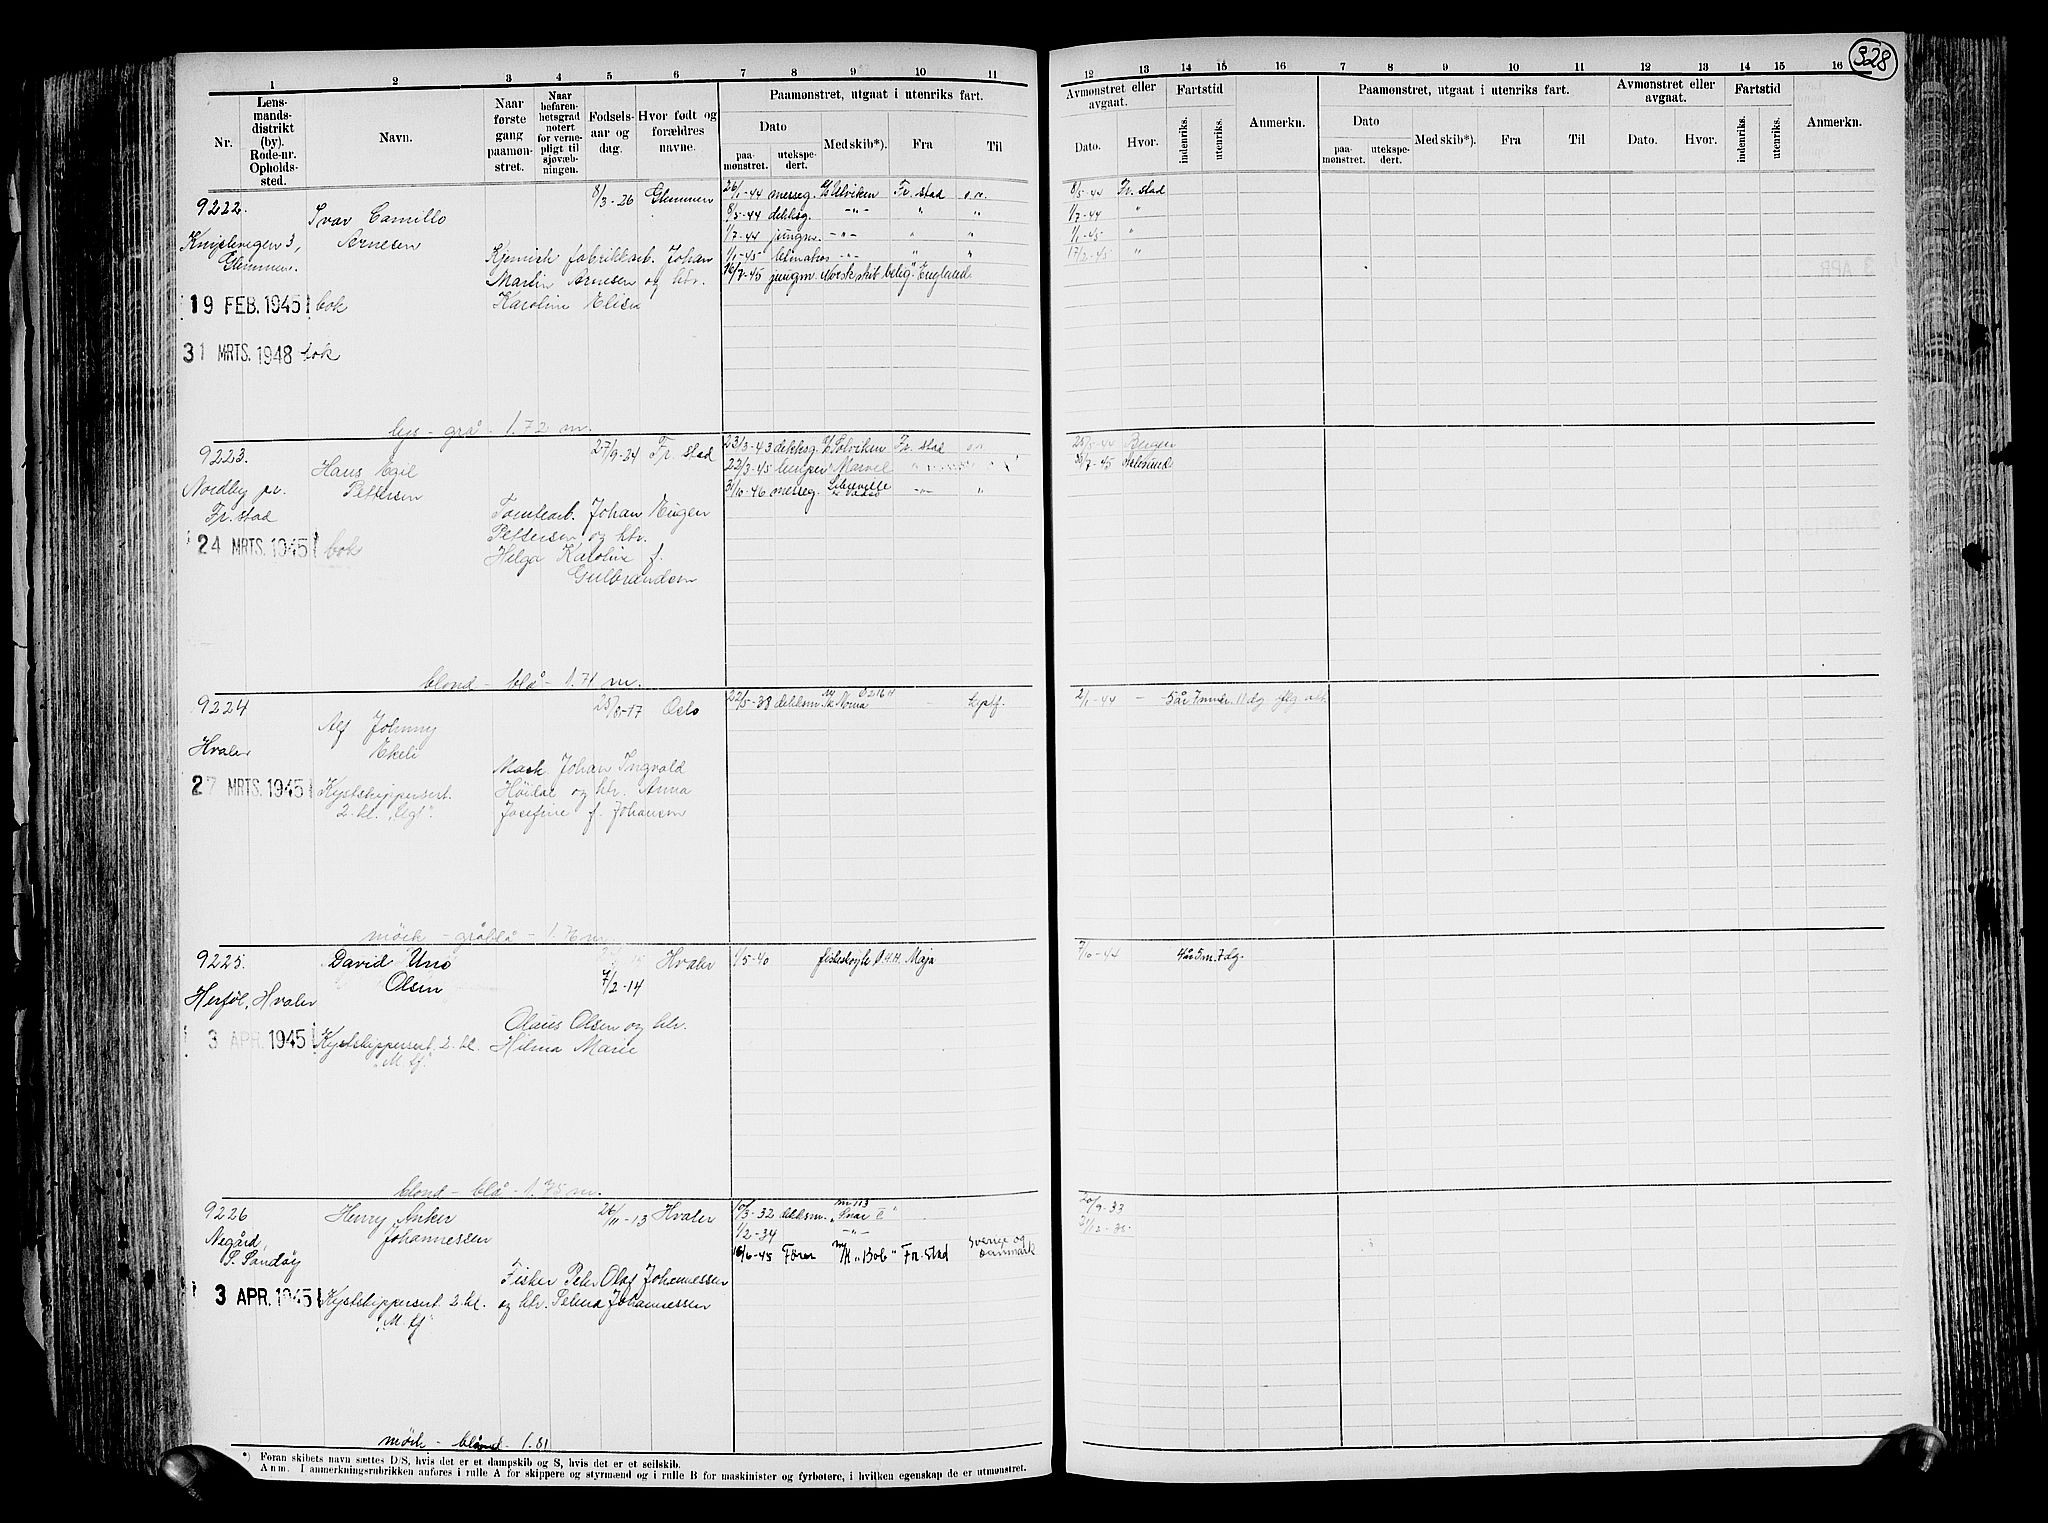 328
1 2 3 4 5 6 7 8 9 10 11
12 13 14 15 16 7 8 9 10 11 12 13 14 15 16
Nr.
Lens-
mands-
distrikt
(by).
Rode-nr.
Opholds-
sted.
Navn.
Naar
første
gang
paamøn-
stret.
Naar
befaren-
hetsgrad
notert
for verne-
pligt til
sjøvæb-
ningen.
Fødsels-
aar og
dag.
Hvor født og
forældres
navne.
Paamønstret, utgaat i utenriks fart.
Dato
paa-
mønstret.
utekspe-
dert.
Med skib*).
Fra
Til
Avmønstret eller
avgaat.
Dato.
Hvor.
Fartstid
indenriks.
utenriks.
Anmerkn.
Paamønstret, utgaat i utenriks fart.
Dato
paa-
mønstret.
utekspe-
dert.
Med skib*).
Fra
Til
Avmønstret eller
avgaat.
Dato.
Hvor.
Fartstid
indenriks.
utenriks.
Anmerkn.
9222.
Ivar Camillo
Arnesen
8/3-26 Glemmen
3,
Glemmen.
Kjemisk fabrikkarb. Johan
Martin Arnesen og htr.
Karoline Elise
19 FEB. 1945 bok
31 MRTS. 1948 bok
26/1-44 messeg. Ulviken Fr. stad o.n. 8/5-44 Fr. stad
8/5-44 dekksg. -"- " " 1/7-44 "
1/7-44 jungm. -"- " " 1/1-45 "
1/1-45 -"- " " 17/2-45 "
16/7-45 jungm. Norsk skib belig. England
lys - grå - 1.72 m.
9223.
Hans Egil
Pettersen
27/9-24 Fr. stad
Nordby pr.
Fr. stad
Johan Eugen
Pettersen og htr.
Helga Karoline f.
Gulbrandsen
24 MRTS. 1945 bok
23/3-43 dekksg. Solviken Fr. stad o.n. 25/5-44 Bergen
22/3-45 lemper Marvel Aalesund
31/10-46 messeg. -"- "
blond - blå - 1.71 m.
9224
Alf Johnny
Ekeli
25/8-17 Oslo
Hvaler
Mask. Johan Ingvald
Höidal og htr. Anna
Josefine f. Johansen
27 MRTS. 1945
Kystskippersert.
2. kl. "Ugt".
22/5-38 dekksm. Norna Kystf. 2/1-44 - 5 år 7 mndr. 11 dg
mörk - gråblå - 1.76 m
9225.
David Uno
Olsen
7/2-14
Hvaler
Herföl, Hvaler
Olaus Olsen og htr.
Hilma Marie
3 APR. 1945
Kystskippersert. 2. kl.
"M. Lf."
1/5-40 fiskeskøyte Ø.4.H. Maja 7/10-44 4 år 5 m. 7 dg.
blond - blå - 1.75 m.
9226
Henry Anker
Johannessen
26/11-13 Hvaler
Negård,
S. Sandöy
Fisker Peter Olaf Johannessen
og htr. Petrea Johannessen
3 APR. 1945
Kystskippersert. 2. kl.
"M. Lf"
10/3-32 dekksm. 20/9-33
1/2-34 -"- 21/12-35
16/6-45 Fører M/K "Bob" Fr. Stad Sverige og
Danmark
mörk - blå - 1.81
*) Foran skibets navn sættes D/S, hvis det er et dampskib og S, hvis det er et seilskib.
Anm. I anmerkningsrubrikken anføres i rulle A for skippere og styrmænd og i rulle B for maskinister og fyrbøtere, i hvilken egenskap de er utmønstret.